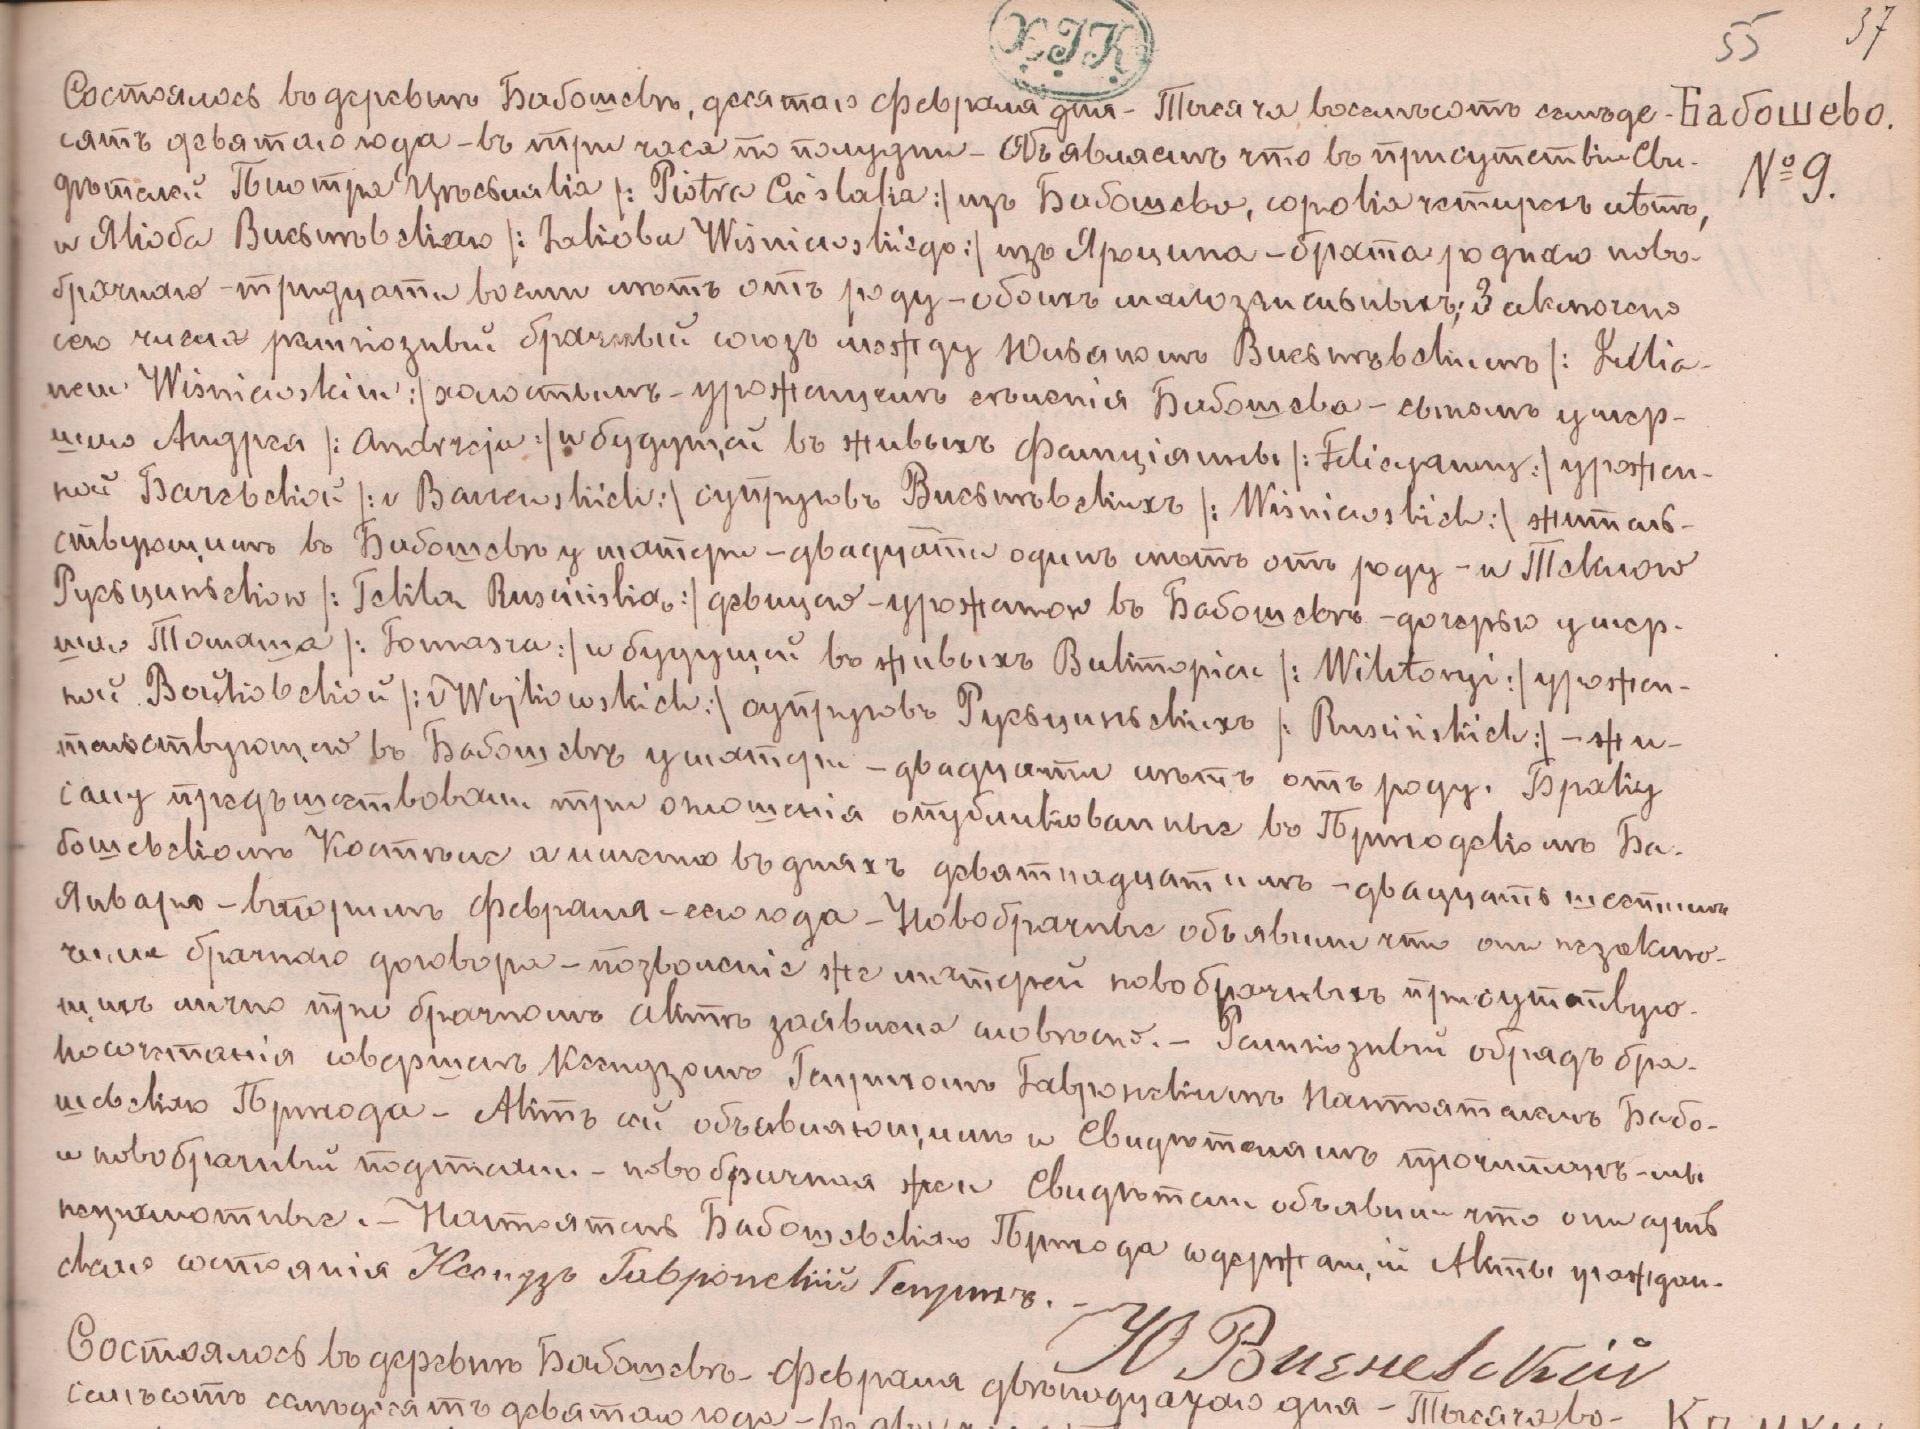 Х.Г.К.
55 37
Состоялось въ деревнѣ Бабошевѣ, десятаго Февраля дня - Тысяча восемьсотъ семьде-
Бабошево.
сятъ девятаго года - въ три часа по полудни - Объявляемъ что въ присутствіи Сви-
№ 9.
дѣтелей Піотра Цѣсьляка |: Piotra Cieślaka :| изъ Бабошева, сорока четырехъ лѣтъ,
и Якоба Висьнѣвскаго |: Jakóba Wiśniewskiego :| изъ Яроцина - брата роднаго ново-
брачнаго - тридцати восьми лѣтъ отъ роду - обоихъ малоземельныхъ; Заключено
сего числа религіозный брачный союзъ между Юльяномъ Висьнѣвскимъ |: Julia-
nem Wiśniewskim :| холостымъ - урожденцемъ селенія Бабошева - сыномъ умер-
шаго Андрея |: Andrzeja :| и будущей въ живыхъ Фелиціянны |: Felicyanny :| урожден-
ной Бачевской |: z Baczewskich :| супруговъ Висьнѣвскихъ |: Wiśniewskich :| житель-
ствующимъ въ Бабошевѣ у матери - двадцати одинъ лѣтъ отъ роду - и Теклою
Русьциньскою |: Teklą Ruscińską :| девицею - урожденою въ Бабошевѣ - дочерью умер-
шаго Томаша |: Tomasza :| и будущей въ живыхъ Викторіи |: Wiktoryi :| урожден-
ной Войковской |: z Wojkowskich :| супруговъ Русьциньскихъ |: Ruscińskich :| - жи-
тельствующею въ Бабошевѣ у матери - двадцати лѣтъ отъ роду. Браку
сему предъшествовали три оглошенія опубликованные въ Приходскомъ Ба-
бошевскомъ Костелѣ а именно въ дняхъ девятнадцатымъ - двадцать шестымъ
Января - вторымъ Февраля - сего года - Новобрачные объявили что они незаклю-
чили брачнаго договора - позволеніе же матерей новобрачныхъ присутствую-
щихъ лично при брачномъ Актѣ заявлено словесно. - Религіозный обрядъ бра-
косочетанія совершенъ Ксендзомъ Генрихомъ Гавронскимъ Настоятелемъ Бабо-
шевскаго Прихода - Актъ сей объявляющимъ и Свидѣтелямъ прочитанъ - мы
и новобрачный подписали - новобрачная же и Свидѣтели объявили что они суть
неграмотные. - Настоятель Бабошевскаго Прихода содержащій Акты граждан-
скаго состоянія Ксендзъ Гавронскій Генрихъ. -
Ю Висневскій
Состоялось въ деревнѣ Бабошевѣ - Февраля двѣнадцатаго дня - Тысяча во-
семьсотъ семьдесятъ девятаго года -